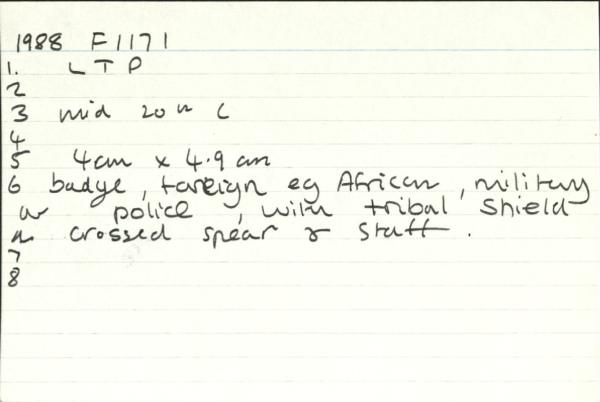 1988 F1171
1. LTP
2
3 mid 20th C
4
5 4cm x 4.9 cm
6 badge, foreign eg African, military
or police, with tribal shield
on crossed spear & staff.
7
8